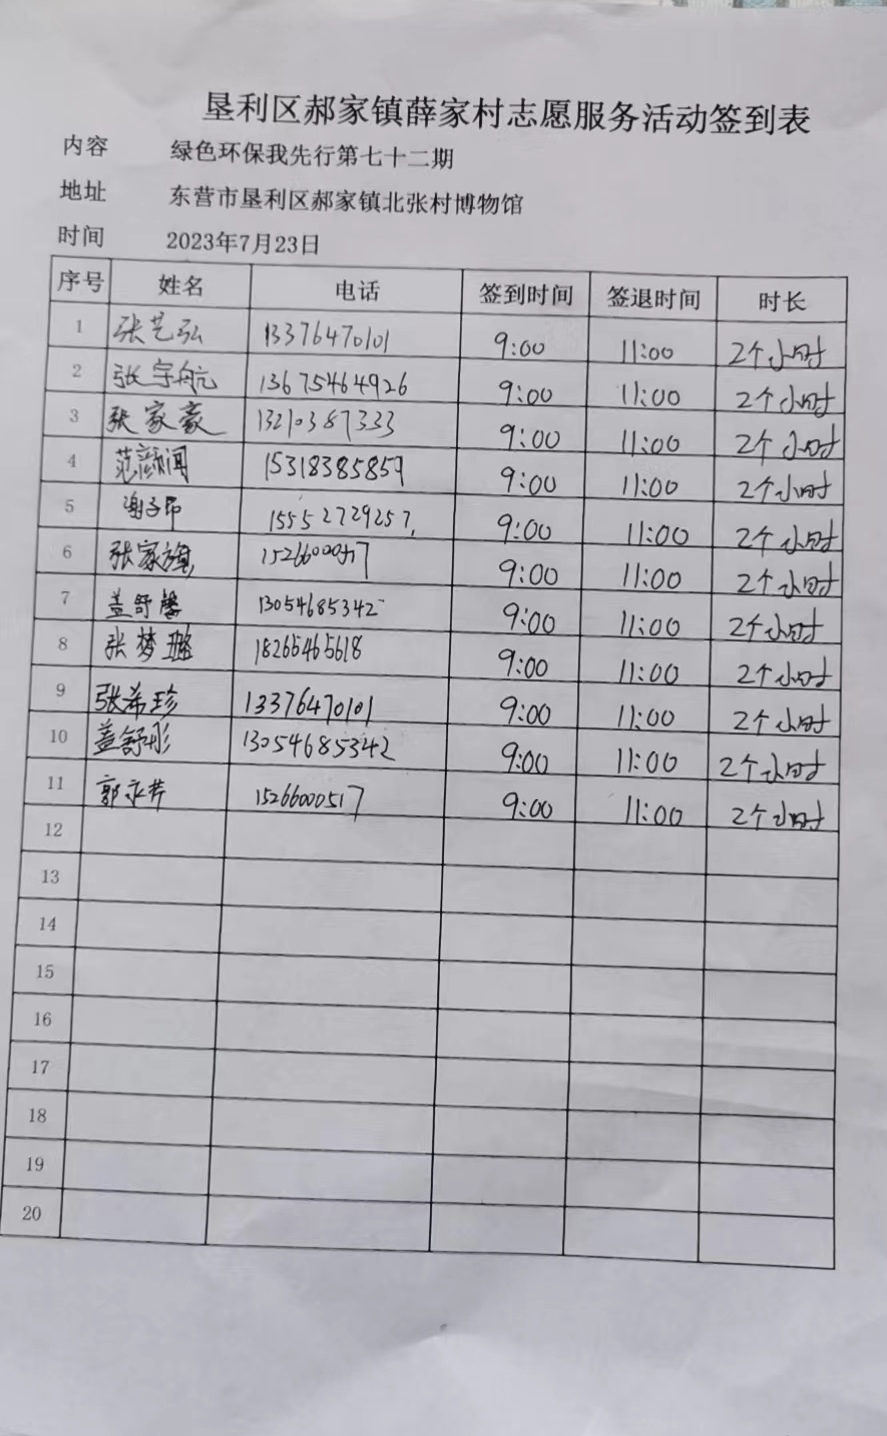 垦利区郝家镇薛家村志愿服务活动签到表
内容 绿色环保我先行第七十二期
地址 东营市垦利区郝家镇北张村博物馆
时间 2023年7月23日
序号 姓名 电话 签到时间 签退时间 时长
1 张艺弘 13376470101 9:00 11:00 2个小时
2 张宇航 13675464926 9:00 11:00 2个小时
3 张家豪 13210387333 9:00 11:00 2个小时
4 范颜闻 15318385859 9:00 11:00 2个小时
5 谢子昂 15552729257, 9:00 11:00 2个小时
6 张家旗 15266000517 9:00 11:00 2个小时
7 盖舒馨 13054685342 9:00 11:00 2个小时
8 张梦璐 18265465618 9:00 11:00 2个小时
9 张希珍 13376470101 9:00 11:00 2个小时
10 盖舒彤 13054685342 9:00 11:00 2个小时
11 郭永芹 15266000517 9:00 11:00 2个小时
12
13
14
15
16
17
18
19
20